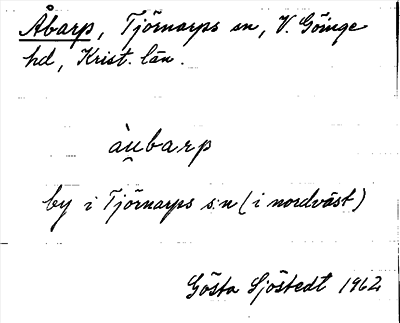 Åbarp, Tjörnarps sn, V. Göinge
hd, Krist. län.
àu̯barp
by i Tjörnarps s:n (i nordväst)
Gösta Sjöstedt 1962